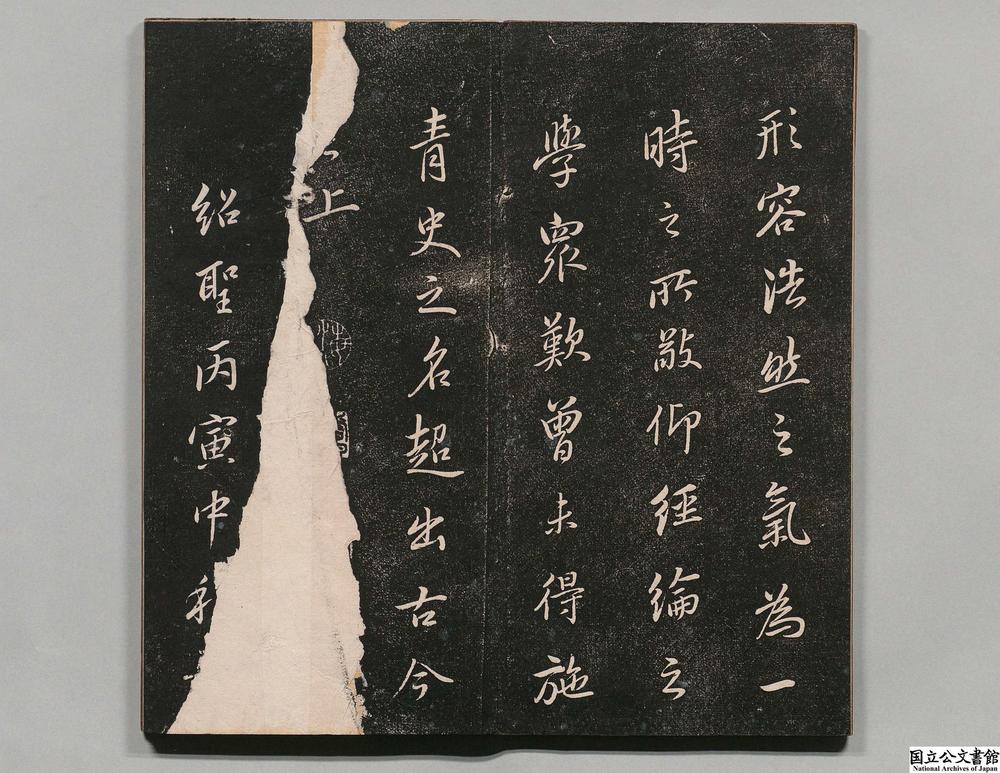 形容浩然之氣為一
時之所敬仰經綸之
學衆歎曾未得施
青史之名超出古今
上
紹聖丙寅中秋
国立公文書館
National Archives of Japan